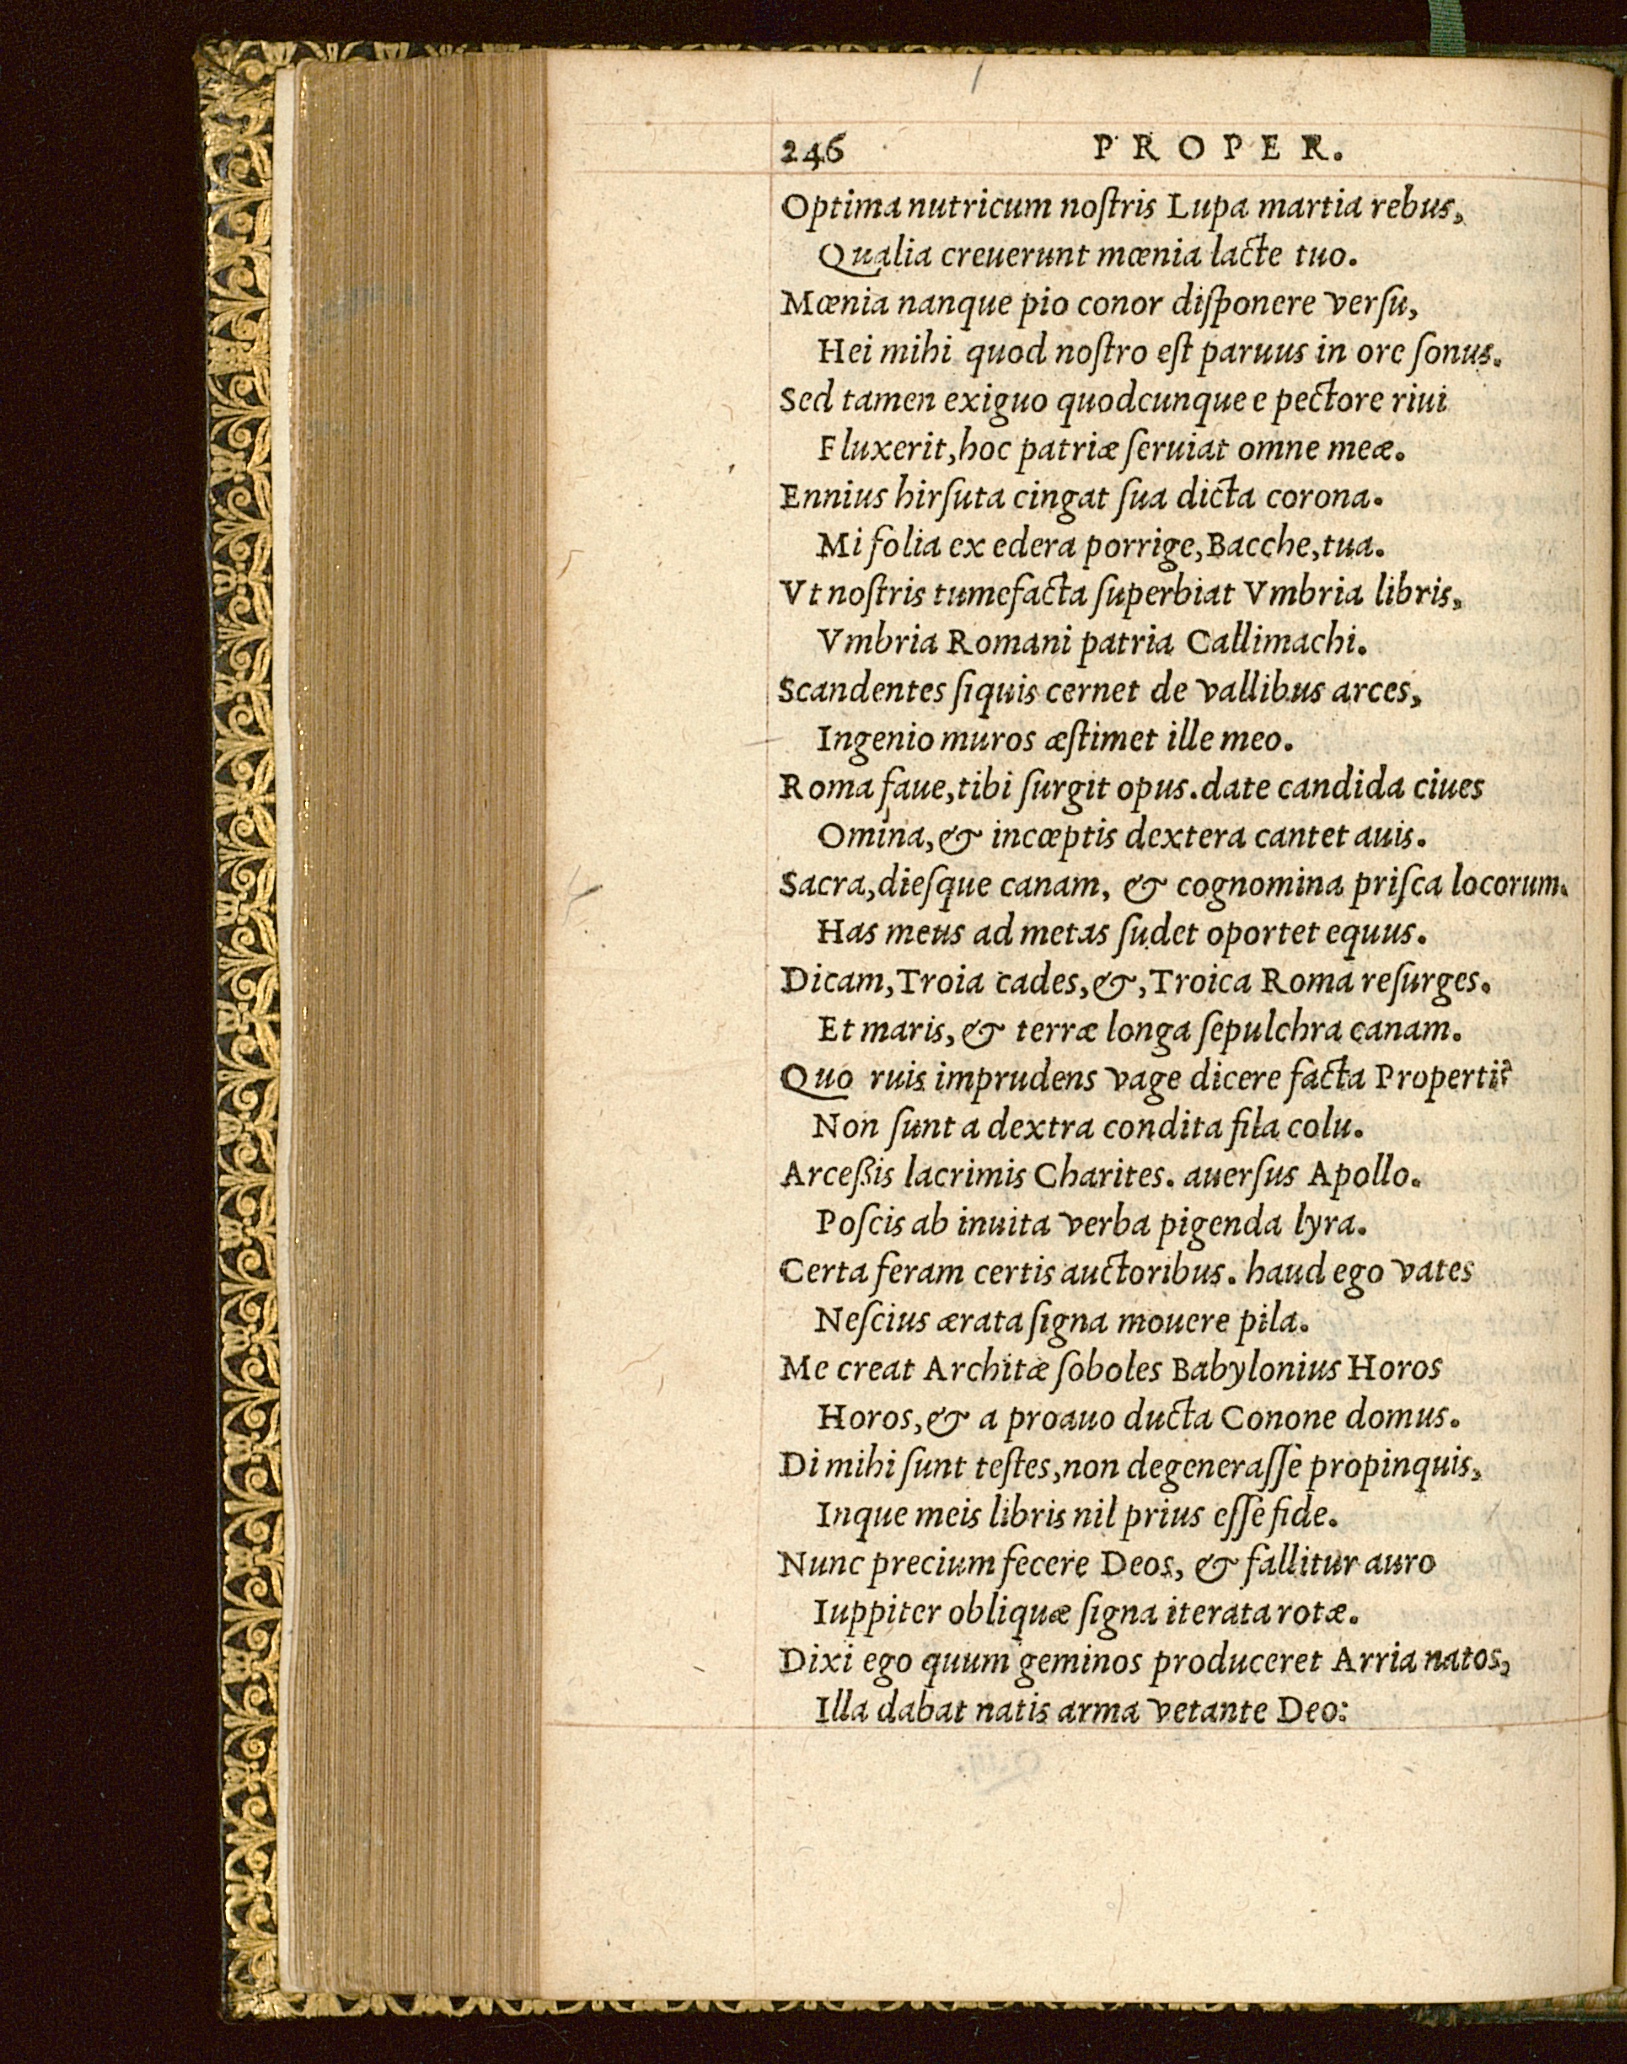 246 PROPER.
Optima nutricum noſtris Lupa martia rebus,
Qualia creuerunt mœnia lacte tuo.
Mœnia nanque pio conor diſponere verſu,
Hei mihi quod noſtro eſt paruus in ore ſonus.
Sed tamen exiguo quodcunque e pectore riui
Fluxerit, hoc patriæ ſeruiat omne meæ.
Ennius hirſuta cingat ſua dicta corona.
Mi folia ex edera porrige, Bacche, tua.
Vt noſtris tumefacta ſuperbiat Vmbria libris,
Vmbria Romani patria Callimachi.
Scandentes ſiquis cernet de vallibus arces,
Ingenio muros æſtimet ille meo.
Roma faue, tibi ſurgit opus. date candida ciues
Omina, & incœptis dextera cantet auis.
Sacra, dieſque canam, & cognomina priſca locorum.
Has meus ad metas ſudet oportet equus.
Dicam, Troia cades, &, Troica Roma reſurges.
Et maris, & terræ longa ſepulchra canam.
Quo ruis imprudens vage dicere facta Properti?
Non ſunt a dextra condita fila colu.
Arceßis lacrimis Charites. auerſus Apollo.
Poſcis ab inuita verba pigenda lyra.
Certa feram certis auctoribus. haud ego vates
Neſcius ærata ſigna mouere pila.
Me creat Architæ ſoboles Babylonius Horos
Horos, & a proauo ducta Conone domus.
Di mihi ſunt teſtes, non degeneraſſe propinquis,
Inque meis libris nil prius eſſe fide.
Nunc precium fecere Deos, & fallitur auro
Iuppiter obliquæ ſigna iterata rotæ.
Dixi ego quum geminos produceret Arria natos,
Illa dabat natis arma vetante Deo: